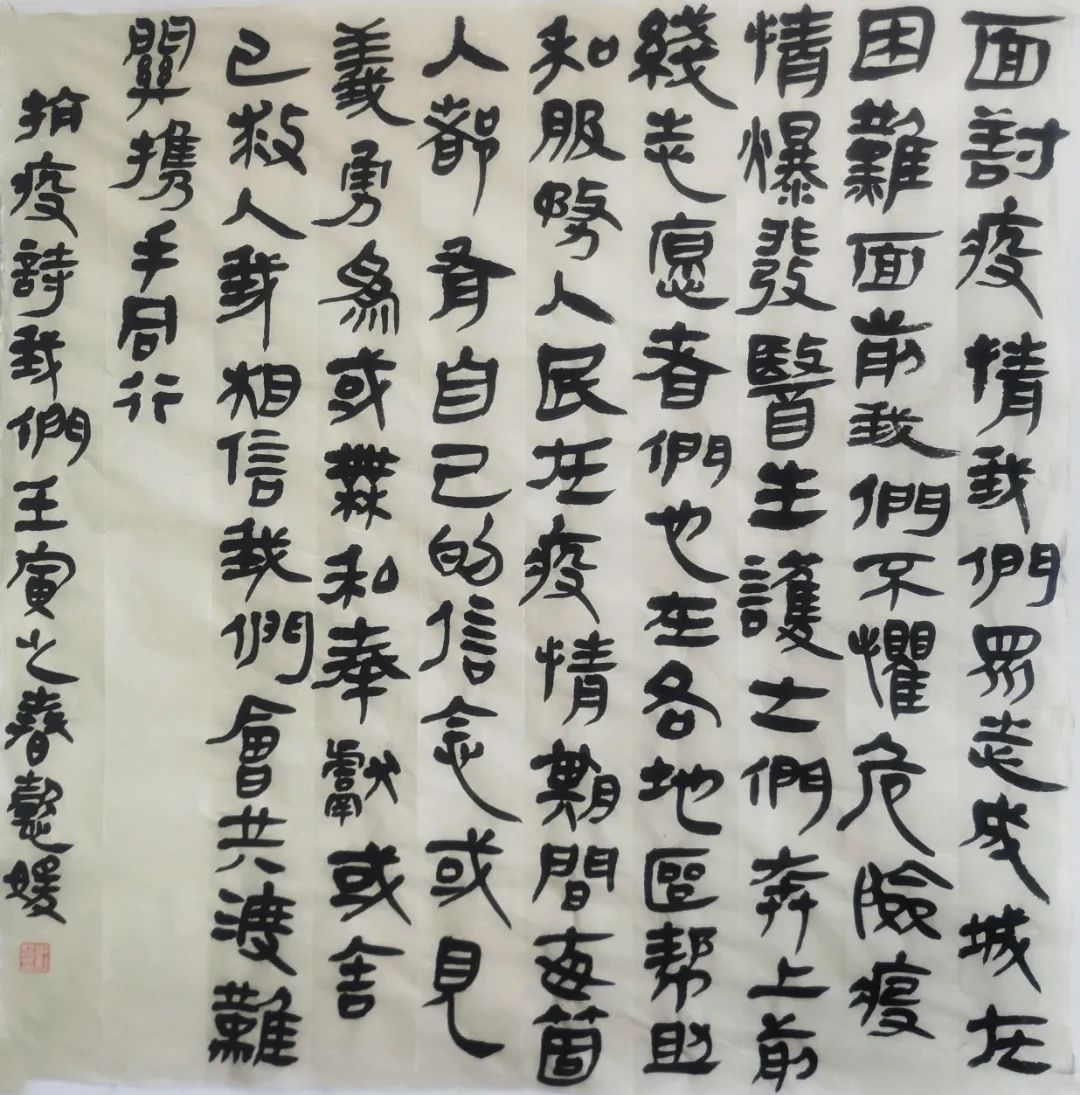 面討疫情我們眾志成城在
困難面前我們不懼危險疫
情爆發醫生護士們奔上前
綫志愿者們也在各地區幫助
和服務人民在疫情期間每箇
人都有自己的信念或見
義勇為或無私奉獻或舍
己救人我相信我們會共渡難
關攜手同行
抗疫詩我們壬寅之春懿媛